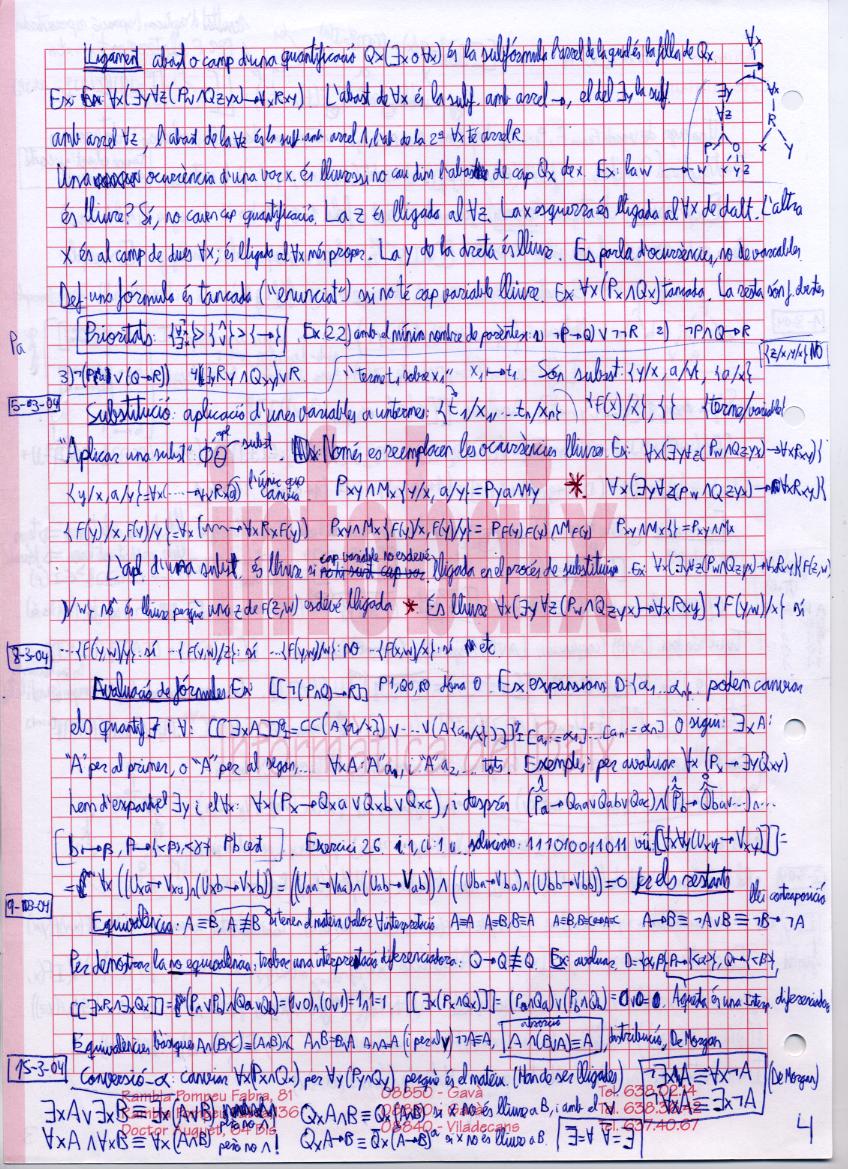 Lligament abast o camp d'una quantificació Qx(∃x o ∀x) és la subfórmula l'arrel de la qual és la filla de Qx.
Ex: ∀x(∃y∀z(Pw∧Qzyx)→∀xRxy) L'abast de ∀x és la subf. amb arrel →, el del ∃y la subf.
amb arrel ∀z, l'abast de la ∀z és la subf. amb arrel ∧, l'ab. de la 2ª ∀x té arrel R.
Una ocurrència d'una var x. és lliure ssi no cau dins l'abast de cap Qx de x. Ex: la w
és lliure? Sí, no cau en cap quantificació. La z és lligada al ∀z. La x esquerra és lligada al ∀x de dalt. L'altra
x és al camp de dues ∀x; és lligada al ∀x més proper. La y de la dreta és lliure. Es parla d'ocurrències, no de variables.
Def: una fórmula és tancada ("enunciat") ssi no té cap variable lliure. Ex: ∀x(Px∧Qx) tancada. La resta són f. obertes
∀x
∃y ∀x
∀z R
∧ x y
P Q
w x y z
Pa
Prioritats: {∀, ∃, ¬} > {∧, ∨} > {→} Ex(2.2) amb el mínim nombre de parèntesi: 1) ¬P→Q∨¬¬R 2) ¬P∧Q→R
{z/x,y/x} NO
3) ∨(Q→R)) 4) ∧Qxy)∨R. "terme t₁ sobre x₁" x₁↦t₁ Són subst: {y/x, a/y}, {a/x}
5-03-04
Substitució: aplicació d'unes variables a uns termes: {t₁/x₁, ... tₙ/xₙ} {f(x)/x}, {} {terme/variable}
"Aplicar una subst" φθ apl. subst. Només es reemplacen les ocurrències lliures. Ex: ∀x(∃y∀z(Pw∧Qzyx)→∀xRxy){
{y/x, a/y}=∀x(...→∀xRxa) l'únic que canvia Pxy∧Mx{y/x, a/y}=Pya∧My * ∀x(∃y∀z(Pw∧Qzyx)→∀xRxy){
{F(y)/x, F(y)/y}=∀x(...→∀xRxF(y)) Pxy∧Mx{F(y)/x, F(y)/y}= PF(y)F(y)∧MF(y) Pxy∧Mx{}=Pxy∧Mx
L'apl. d'una subst. és lliure si cap variable no esdevé lligada en el procés de substitució. Ex: ∀x(∃y∀z(Pw∧Qzyx)→∀xRxy){F(z,w)
/w} no és lliure perquè una z de F(z,w) esdevé lligada * És lliure ∀x(∃y∀z(Pw∧Qzyx)→∀xRxy) {F(y,w)/x} sí
8-3-04
...{F(y,w)/y}: sí ...{F(y,w)/z}: sí ...{F(y,w)/w}: no ...{F(x,w)/x}: sí etc.
Avaluació de fórmules. Ex: [[¬(P∧Q)→R]] P1, Q0, R0 dóna 0. Ex expansions D={α₁...αₙ}. podem canviar
els quantif ∃ i ∀: O sigui: ∃xA:
"A" per al primer, o "A" per al segon,... ∀xA: "A" a₁, i "A" a₂... tots. Exemple: per avaluar ∀x(Px→∃yQxy)
hem d'expandir el ∃y i el ∀x: ∀x(Px→Qxa∨Qxb∨Qxc), i després (Pa→Qaa∨Qab∨Qac)∧(Pb→Qba∨...)∧...
Pb cert Exercici 2.6 solucions: 111010011011 vii: [[∀x∀y(Uxy→Vxy)]]=
= ∀x((Uxa→Vxa)∧(Uxb→Vxb))=((Uaa→Vaa)∧(Uab→Vab))∧((Uba→Vba)∧(Ubb→Vbb))=0 per els restants
9-03-04
llei contraposició
Equivalència: A≡B, A≢B si tenen el mateix valor ∀ interpretació A≡A A≡B, B≡A A≡B, B≡C⇒A≡C A→B≡¬A∨B≡¬B→¬A
Per demostrar la no equivalència: trobar una interpretació diferenciadora: Ex: avaluar. D={α,β}, P↦{<α>}, Q↦{<β>},
[[∃xPx∧∃xQx]]=(Pa∨Pb)∧(Qa∨Qb)=(1∨0)∧(0∨1)=1∧1=1. [[∃x(Px∧Qx)]]=(Pa∧Qa)∨(Pb∧Qb)=0∨0=0. Aquesta és una Interp. diferenciadora
Equivalències bàsiques A∧(B∧C)≡(A∧B)∧C A∧B≡B∧A A∧A≡A (i per al ∨) ¬¬A≡A, absorció A∧(B∨A)≡A distribució, De Morgan
15-3-04
Conversió-α: canviar ∀x(Px∧Qx) per ∀y(Py∧Qy) perquè és el mateix. (Han de ser lligades) ¬∃xA≡∀x¬A (De Morgan)
¬∀xA≡∃x¬A
∃xA∨∃xB≡∃x(A∨B) però no ∧! QxA∧B≡Qx(A∧B) si x no és lliure a B, i amb el ∨.
∀xA∧∀xB≡∀x(A∧B) però no ∨! QxA→B≡Q̄x(A→B) si x no és lliure a B. ∃̄=∀ ∀̄=∃
4
infobaix
informàtica del Baix
Rambla Pompeu Fabra, 81 08850 - Gavà Tel. 638.02.14
Doctor Auguet, 64 Bis 08840 - Viladecans Tel. 637.40.67